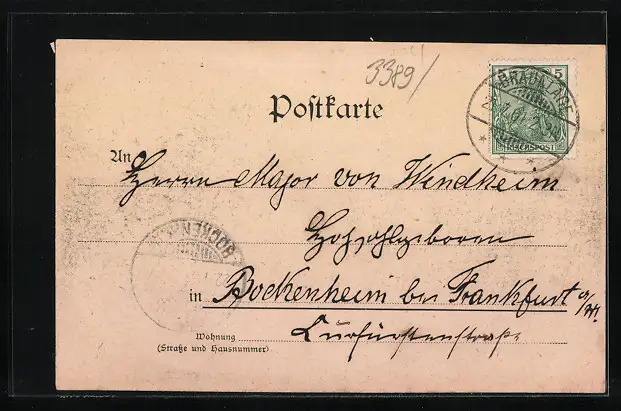 3389/
5
BRAUNLAGE
REICHSPOST
Postkarte
An Herrn Major von Windheim
Hochwohlgeboren
BOCKENHEIM
in Bockenheim bei Frankfurt a/M.
Wohnung Kurfürstenstraße
(Straße und Hausnummer)